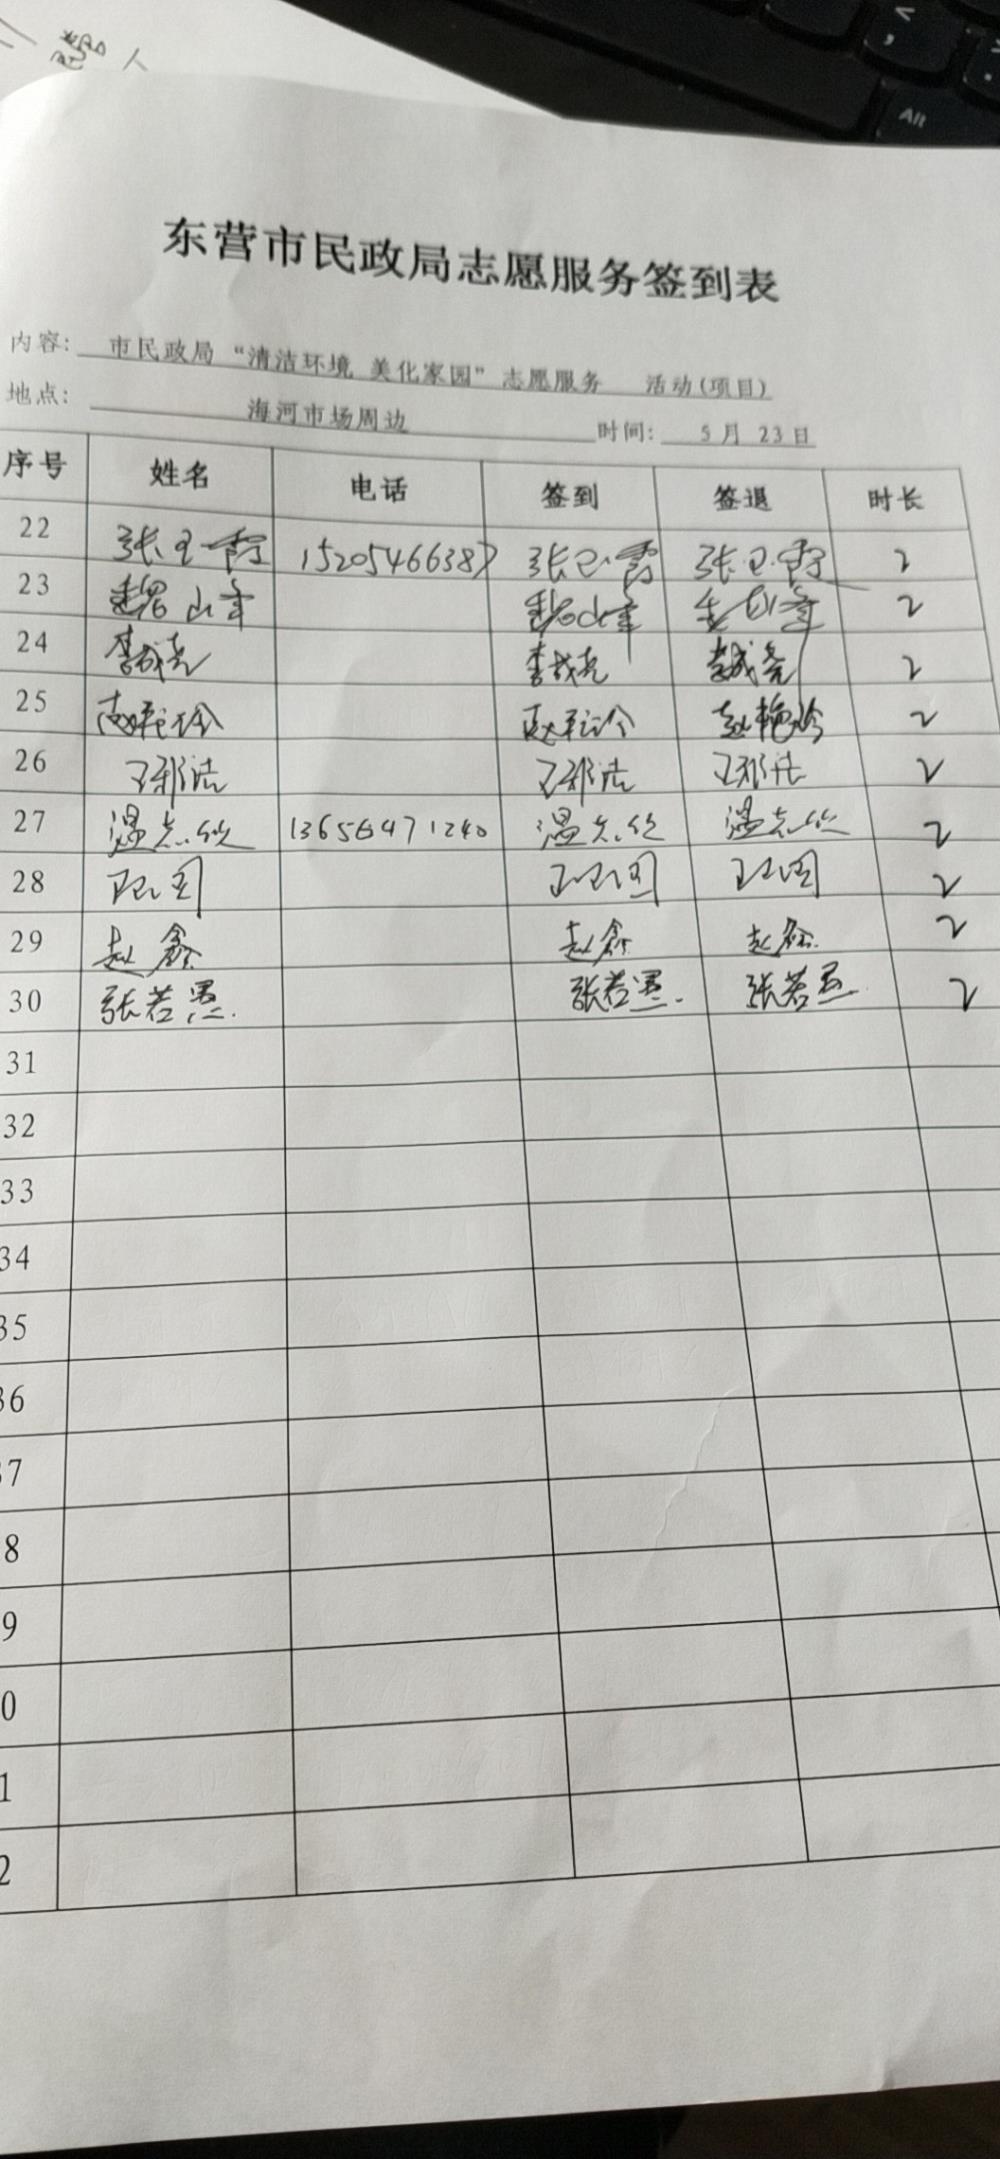 东营市民政局志愿服务签到表
内容: 市民政局“清洁环境 美化家园”志愿服务 活动(项目)
地点: 海河市场周边 时间: 5月23日
序号 姓名 电话 签到 签退 时长
22 张卫霞 15205466387 张卫霞 张卫霞 2
23 山峰 山峰 2
24 李成尧 李成尧 李成尧 2
25 赵艳玲 赵艳玲 赵艳玲 2
26 王邪浩 王邪浩 王邪浩 2
27 温志丝 13656471240 温志丝 温志丝 2
28 王卫国 王卫国 王卫国 2
29 赵鑫 赵鑫 赵鑫 2
30 张若愚 张若愚 张若愚 2
31
32
33
34
35
36
37
8
9
0
1
2
Alt